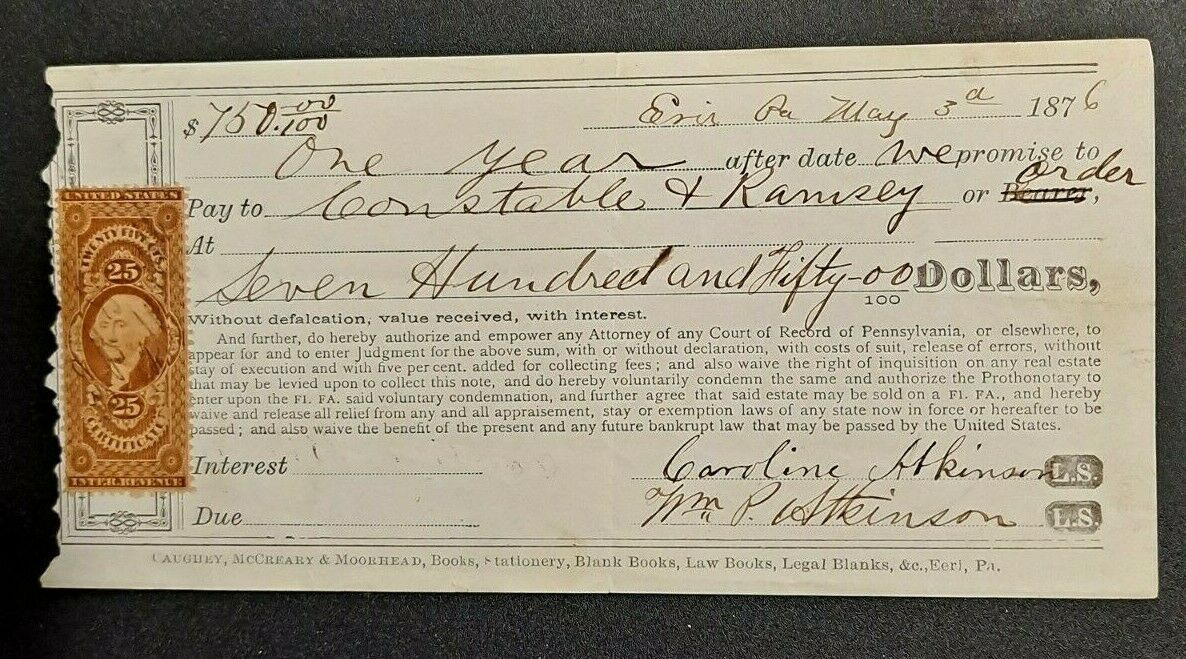 $750.00/100 Erie Pa May 3d 1876
One year after date we promise to
Pay to Constable & Ramsey or Bearer, order
At
Seven Hundred and Fifty-00/100 Dollars,
Without defalcation, value received, with interest.
And further, do hereby authorize and empower any Attorney of any Court of Record of Pennsylvania, or elsewhere, to
appear for and to enter Judgment for the above sum, with or without declaration, with costs of suit, release of errors, without
stay of execution and with five per cent. added for collecting fees; and also waive the right of inquisition on any real estate
that may be levied upon to collect this note, and do hereby voluntarily condemn the same and authorize the Prothonotary to
enter upon the FI. FA. said voluntary condemnation, and further agree that said estate may be sold on a FI. FA., and hereby
waive and release all relief from any and all appraisement, stay or exemption laws of any state now in force or hereafter to be
passed; and also waive the benefit of the present and any future bankrupt law that may be passed by the United States.
Interest Caroline Atkinson L.S.
Due Wm P. Atkinson L.S.
CAUGHEY, MCCREARY & MOORHEAD, Books, Stationery, Blank Books, Law Books, Legal Blanks, &c., Eerl, Pa.
UNITED STATES
TWENTY FIVE CTS.
25
25
CERTIFICATE
INTER. REVENUE